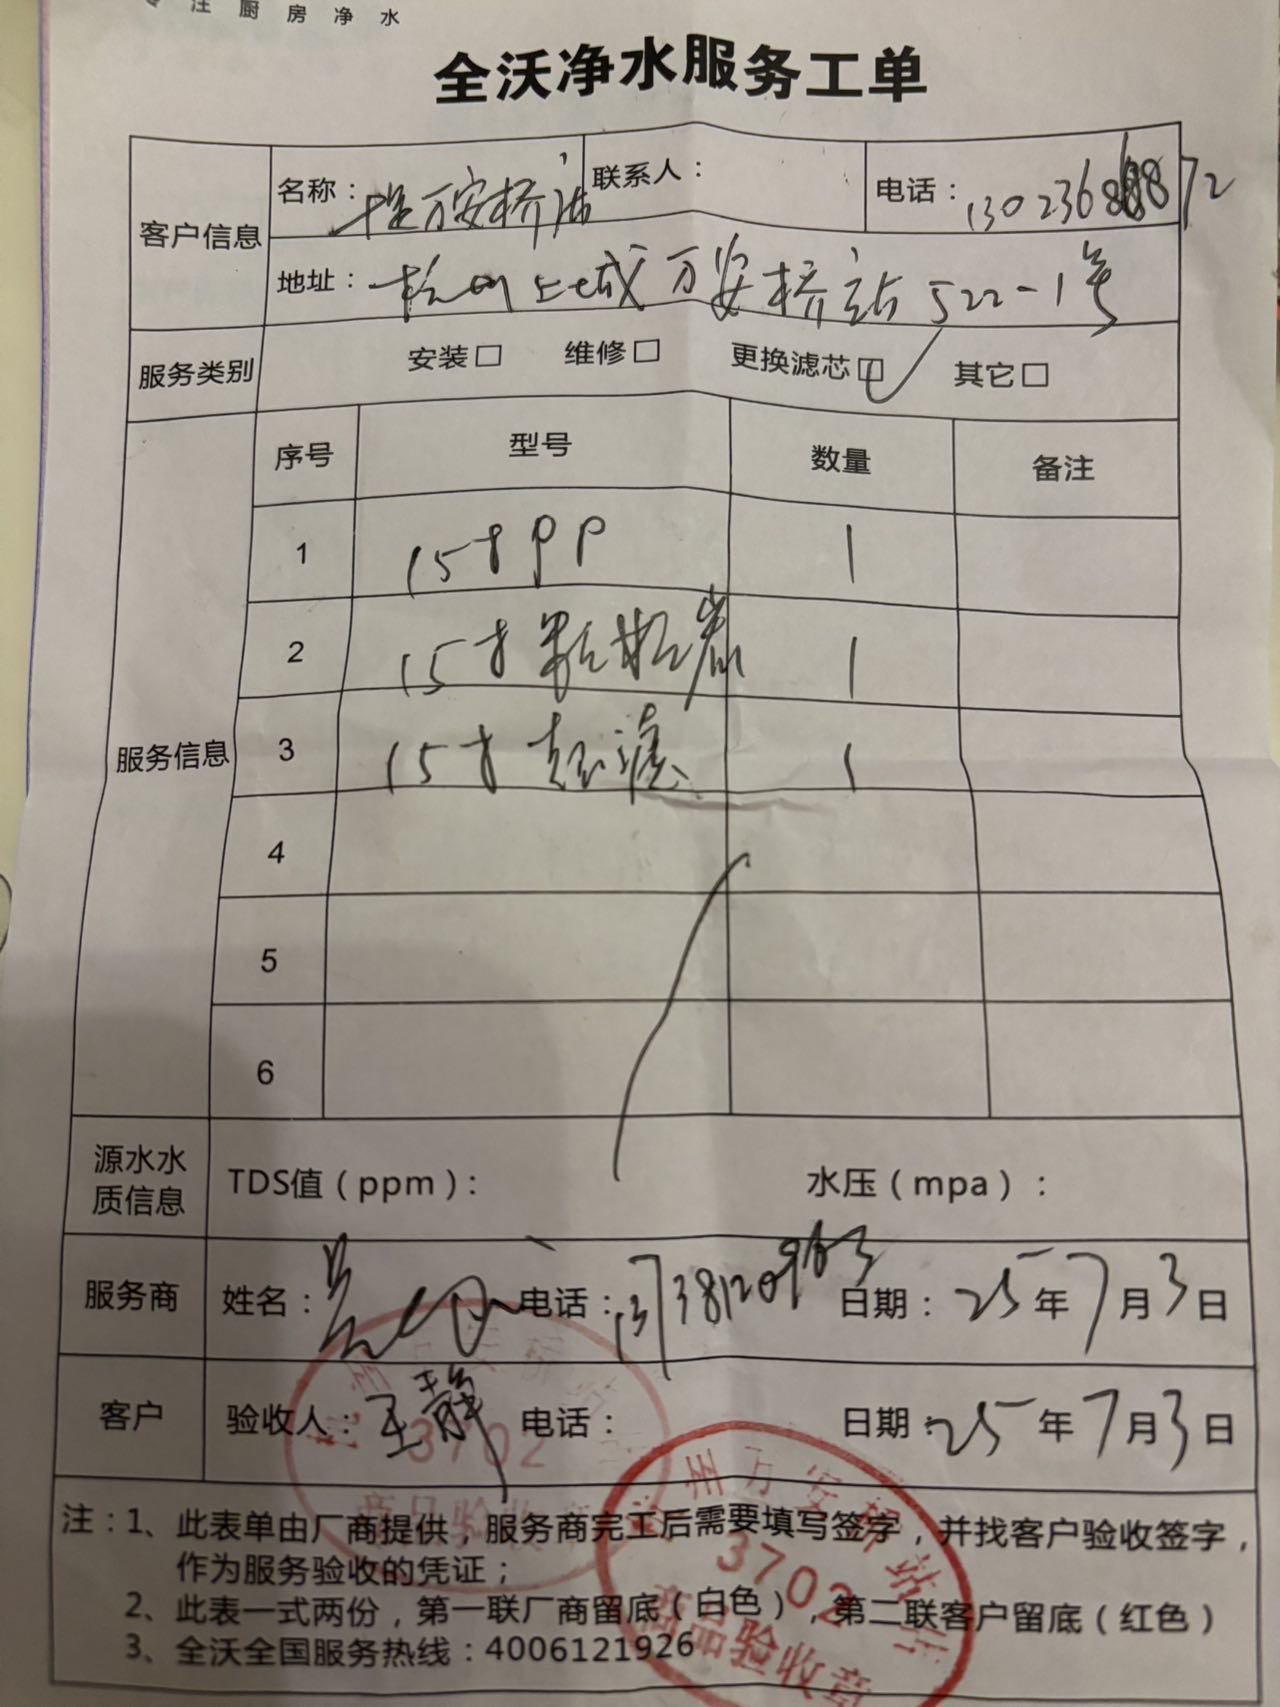 注 厨 房 净 水
全沃净水服务工单
客户信息
名称：
万安桥店
联系人：
电话：
地址：杭州上城万安桥站522-1号
服务类别
安装□ 维修□ 更换滤芯□ 其它□
序号 型号 数量 备注
服务信息
1 15寸PP 1
2 15寸颗粒炭 1
3 15寸超滤 1
4
5
6
源水水质信息
TDS值（ppm）： 水压（mpa）：
服务商 姓名： 电话： 日期：25年7月3日
客户 验收人：王静 电话： 日期：25年7月3日
3702
商品验收章
州万安桥站店
3702
商品验收章
注：1、此表单由厂商提供，服务商完工后需要填写签字，并找客户验收签字，
作为服务验收的凭证；
2、此表一式两份，第一联厂商留底（白色），第二联客户留底（红色）
3、全沃全国服务热线：4006121926